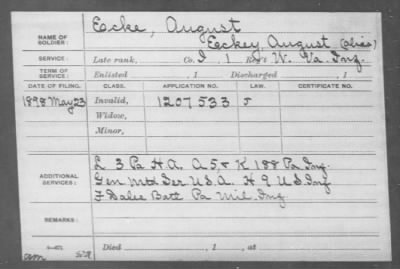 NAME OF SOLDIER: Ecke, August
Eckey, August (alias)
SERVICE: Late rank, Co. I, 1 Reg't W. Va. Inf.
TERM OF SERVICE: Enlisted , 1 Discharged , 1
DATE OF FILING. CLASS. APPLICATION NO. LAW. CERTIFICATE NO.
1898 May 23 Invalid, 1207533
Widow,
Minor,
ADDITIONAL SERVICES: L 3 Pa H.A. A 5, & K 188 Pa Inf.
Gen Mtd Ser U.S.A. H 9 U.S. Inf
F Dales Batt Pa Mil. Inf
REMARKS:
Died , 1 , at